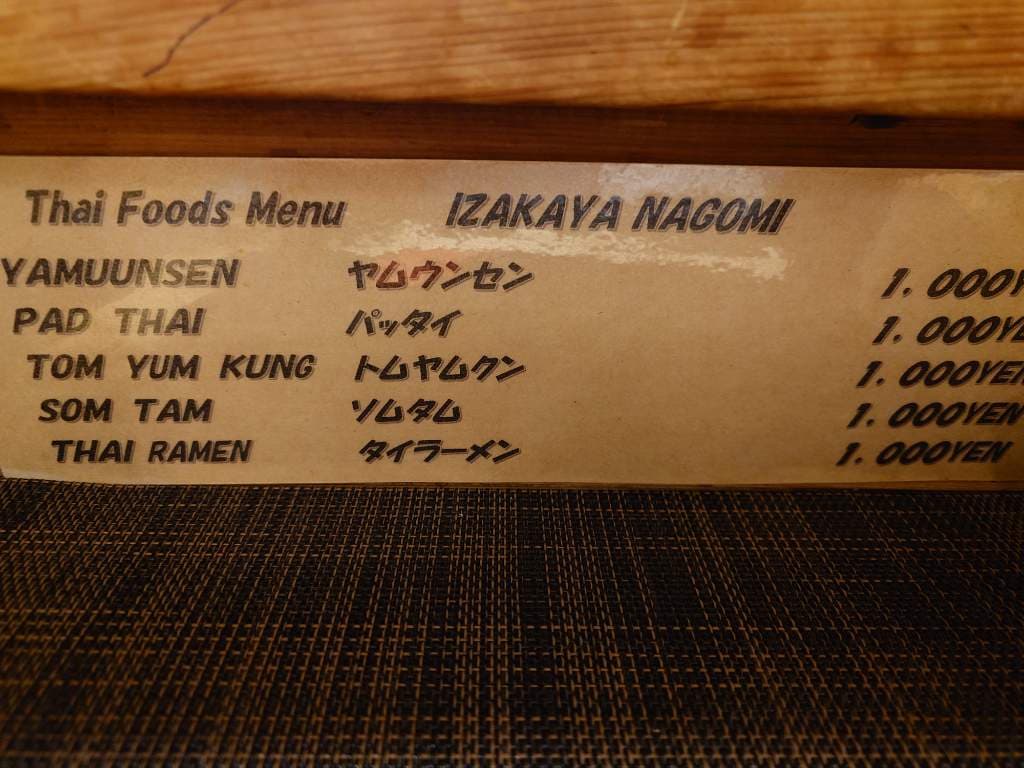 Thai Foods Menu IZAKAYA NAGOMI
YAMUUNSEN ヤムウンセン 1.000Y
PAD THAI パッタイ 1.000YE
TOM YUM KUNG トムヤムクン 1.000YEN
SOM TAM ソムタム 1.000YEN
THAI RAMEN タイラーメン 1.000YEN